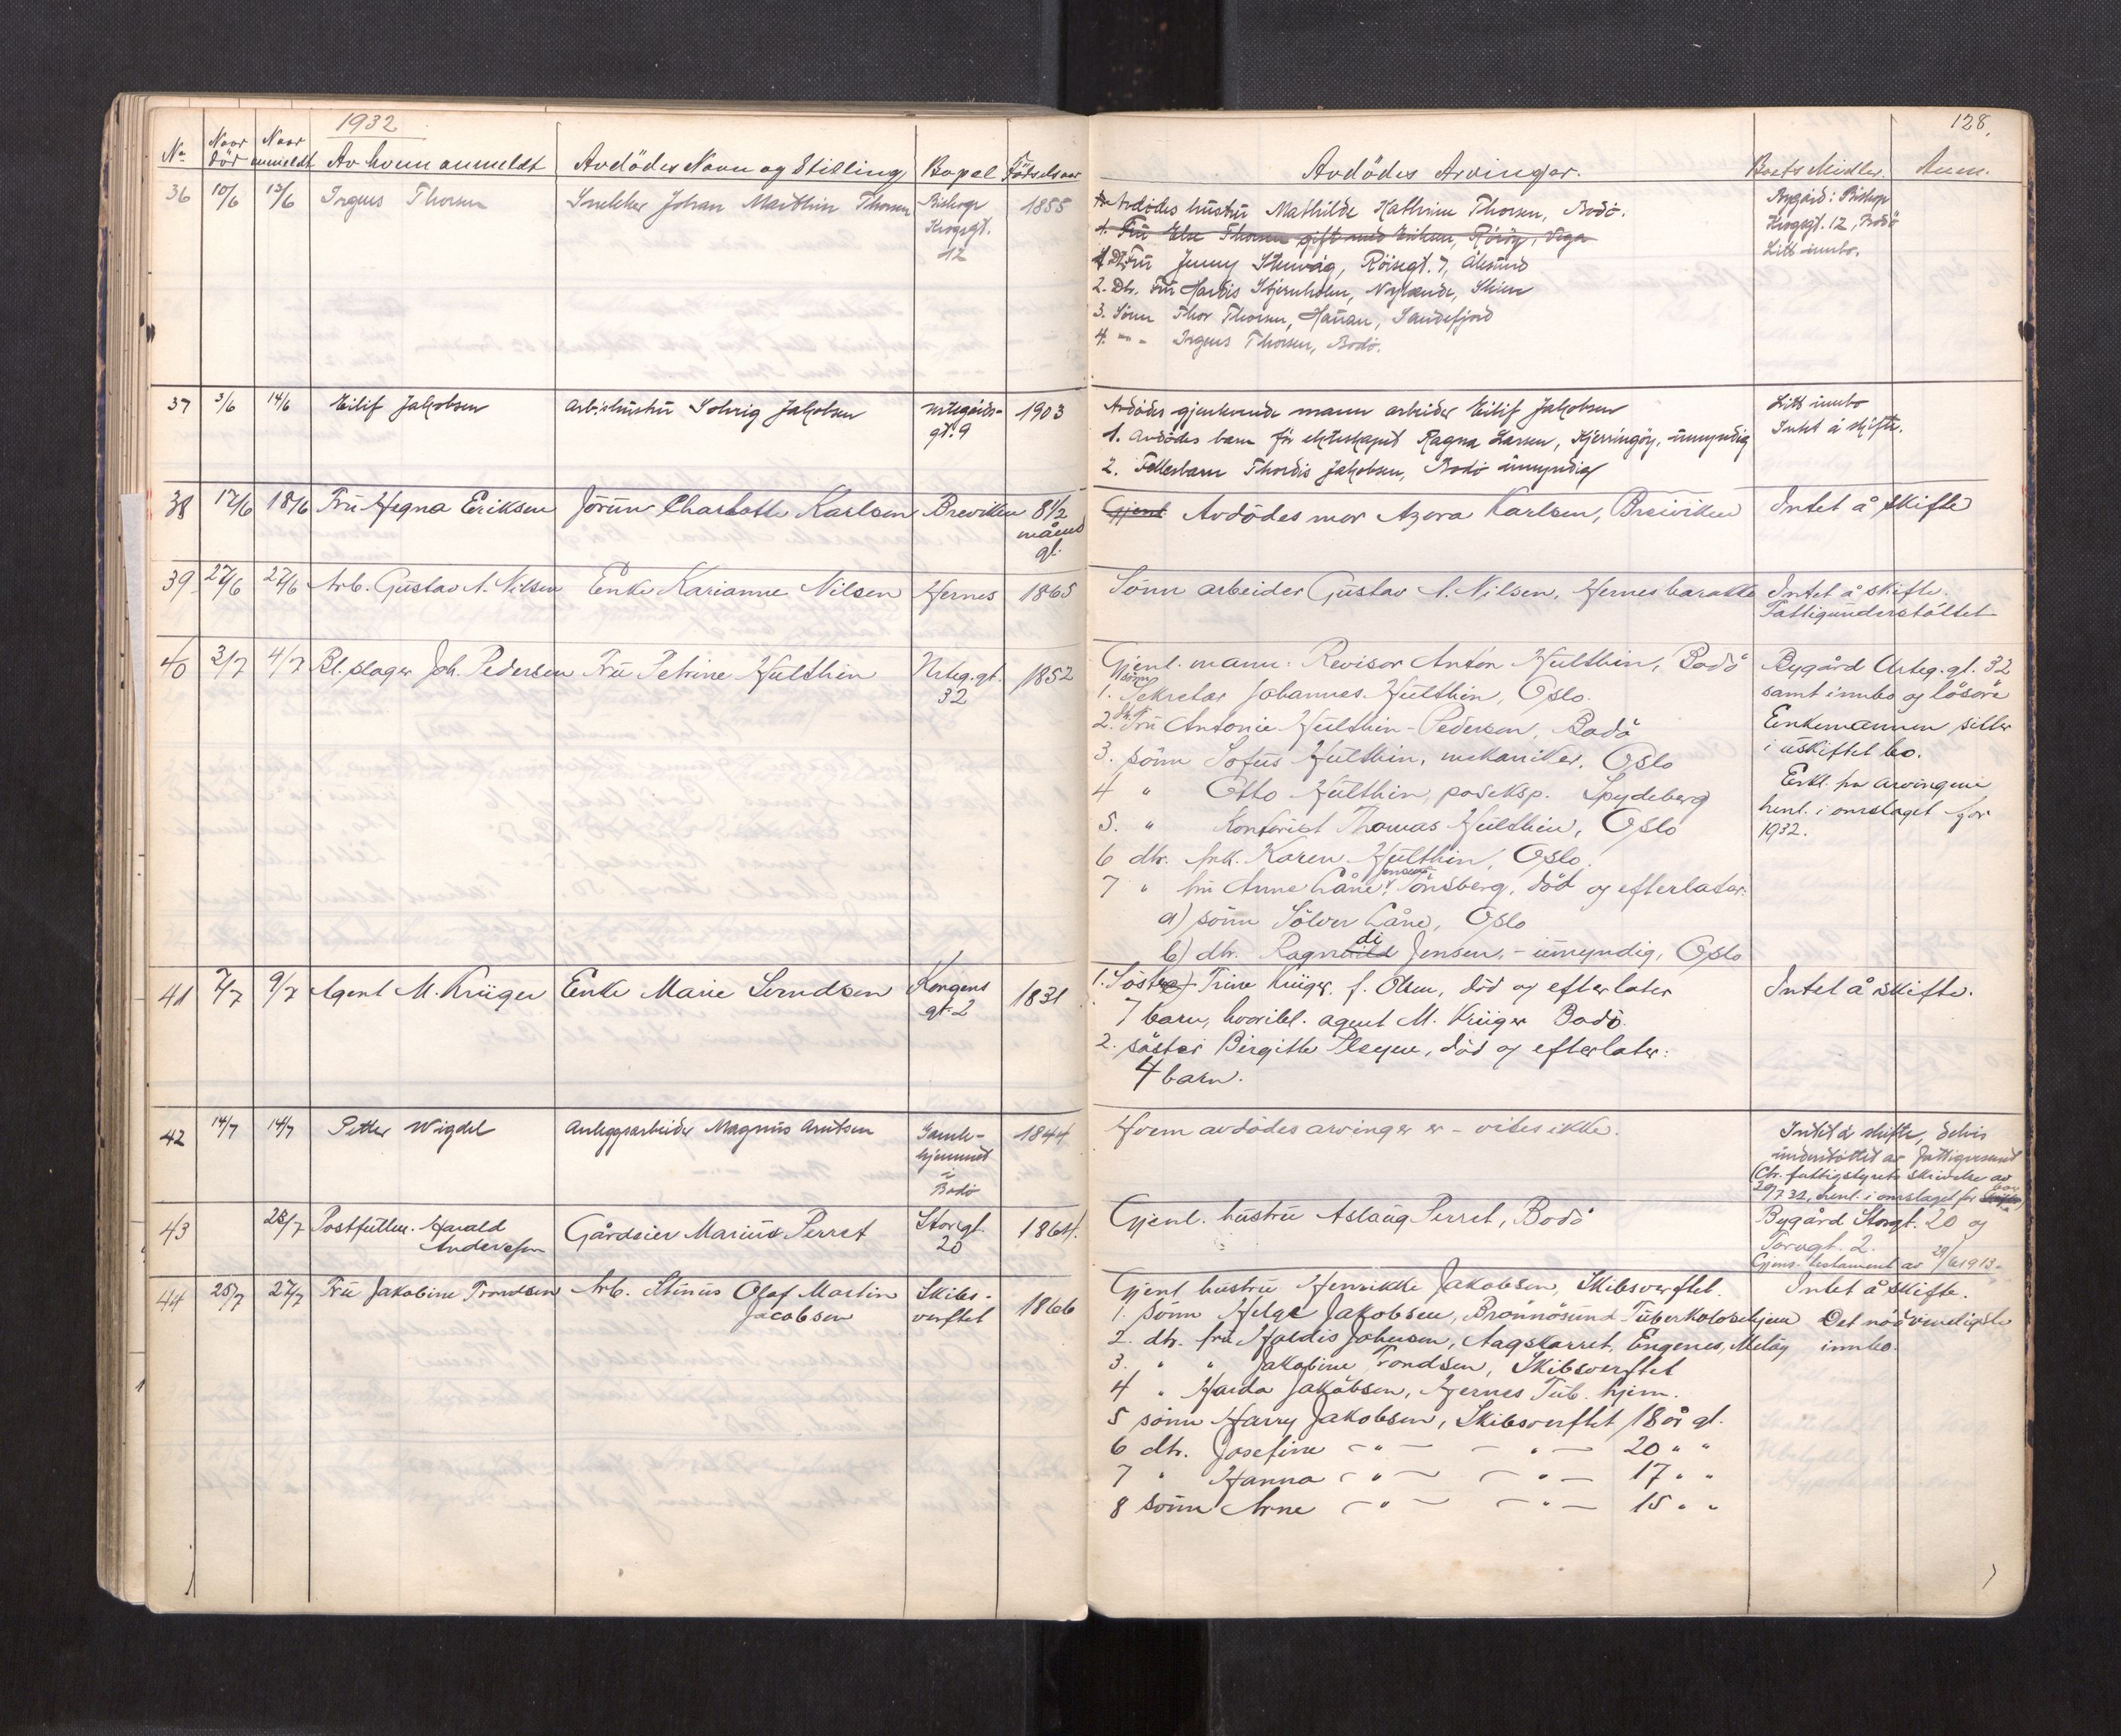 1932
128.
No Naar död Naar anmeldt Av hvem anmeldt Avdödes Navn og Stilling Bopæl Födselsaar
Avdödes Arvinger. Boets Midler. Anm.
36 10/6 13/6 Thorsen Snekker Johan Thorsen Biskop 1855
Krogsgt.
12
Avdödes hustru Mathilde Kathrine Thorsen, Bodö.
1. Fru Else Thorsen gift med Eriksen, Vega
1. Dtr. Fru Jenny Röisegt. 7, Ålesund
2. Dtr. Fru Stjernholm, Nylende, Skien
3. Sönn Thor Thorsen, Sandefjord
4. -"- Thorsen, Bodö.
Bygård: Biskop
Krogsgt. 12, Bodö
Litt innbo.
37 3/6 14/6 Eilif Jakobsen Arb.hustru Solveig Jakobsen 1903
gt. 9
Avdödes gjenlevende mann arbeider Eilif Jakobsen
1. Avdödes barn för ekteskapet Ragna Larsen, Kjerringöy, umyndig
2. Fellesbarn Thordis Jakobsen, Bodö umyndig
Litt innbo
Intet å skifte.
38 17/6 18/6 Fru Hegna Eriksen Jorunn Charlotte Karlsen Breviken 8 1/2
måned
gl.
Gjenl Avdödes mor Azora Karlsen, Breiviken Intet å skifte
39 27/6 27/6 Arb. Gustav A. Nilsen Enke Karianne Nilsen Hernes 1865
Sönn arbeider Gustav A. Nilsen, Hernes barakke Intet å skifte.
Fattigunderstöttet
40 3/7 4/7 Bl.slager Joh. Pedersen Fru Petrine Hulthin Nrteg.gt. 1852
32
Gjenl. mann: Revisor Anton Hulthin, Bodö
sönn
1. Sekretær Johannes Hulthin, Oslo.
dtr.
2. Fru Antonie Hulthin-Pedersen, Bodö
3. sönn Sofus Hulthin, mekaniker, Oslo
4 " Otto Hulthin, poseksp. Spydeberg
5. " Kontorist Thomas Hulthin, Oslo
6 dtr. frk. Karen Hulthin, Oslo.
Jensen
7 " fru Anne Låne, Tönsberg, död og efterlater:
a) sönn Sölver Låne, Oslo
di
b) dtr. Ragnhild Jensen, - umyndig, Oslo
Bygård Nrteg. gt. 32
samt innbo og lösöre
Enkemannen sitter
i uskiftet bo.
Erkl. fra arvingene
henl. i omslaget for
1932.
41 7/7 9/7 Agent M. Krüger Enke Marie Svendsen Kongens 1831
gt. 2
1. Söster Trine Krüger f. Olsen, död og efterlater
7 barn, hvoribl. agent M. Krüger Bodö.
2. söster Birgitte Pleyen, död og efterlater:
4 barn.
Intet å skifte.
42 14/7 14/7 Petter Wigdel Anleggsarbeider Magnus Arntsen Gamle- 1844
hjemmet
i
Bodö
Hvem avdödes arvinger er - vites ikke.
Intet å skifte, delvis
understöttet av fattigvesenet
(Cfr. fattigstyrets skrivelse av
20/7 32, henl. i omslaget for
43 28/7 Postfullm. Harald Gårdeier Marius Perret Storgt. 1864.
Andersen 20
Gjenl. hustru Aslaug Perret, Bodö
Bygård Storgt. 20 og
Torvgt. 2.
Gjens. testament av 29/6 1913.
44 25/7 27/7 Fru Jakobine Trondsen Arb. Stinus Olaf Martin Skibs- 1866
Jacobsen verftet
Gjenl hustru Henrikke Jakobsen, Skibsverftet.
1. Sönn Helge Jakobsen, Brönnösund Tuberkolosehjem
2. dtr. fru Haldis Johnsen, Aagskarret, Engenes, Melöy
3. " " Jakobine Trondsen, Skibsverftet
4 " Harda Jakobsen, Hernes Tub. hjem.
5 sönn Harry Jakobsen, Skibsverftet 18 år gl.
6 dtr. Josefine -"- -"- 20 " "
7 " Hanna -"- -"- 17 " "
8 sönn Arne -"- -"- 15 " "
Intet å skifte.
Det nödvendigste
innbo.